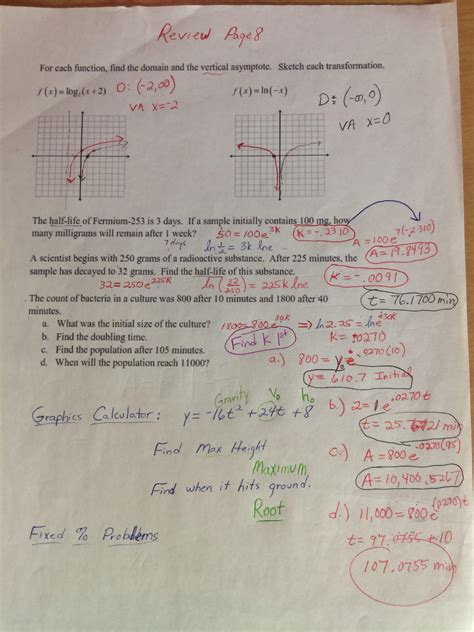 Review Page 8
For each function, find the domain and the vertical asymptote. Sketch each transformation.
f(x) = log₂(x + 2) D: (-2, ∞)
VA x=-2
f(x) = ln(-x) D: (-∞, 0)
VA x=0
The half-life of Fermium-253 is 3 days. If a sample initially contains 100 mg, how
many milligrams will remain after 1 week? 50 = 100e^3k K = -.2310
7 days ln ½ = 3k lne
A = 100e^7(-.2310)
A = 19.8493
A scientist begins with 250 grams of a radioactive substance. After 225 minutes, the
sample has decayed to 32 grams. Find the half-life of this substance. K = -.0091
32 = 250e^225k ln(32/250) = 225k lne
t = 76.1700 min
The count of bacteria in a culture was 800 after 10 minutes and 1800 after 40
minutes.
a. What was the initial size of the culture? 1800 = 800e^30k ⇒ ln 2.25 = lne^30k
b. Find the doubling time. Find K 1st K = .0270
c. Find the population after 105 minutes. a.) 800 = y₀e^.0270(10)
d. When will the population reach 11000?
y = 610.7 Initial
Graphics Calculator: y = -16t² + 24t + 8
Gravity V₀ h₀
b.) 2 = 1e^.0270t
t = 25.6721 min
Find Max Height
Maximum
c.) A = 800e^.0270(95)
A = 10,400.5267
Find when it hits ground.
Root
d.) 11,000 = 800e^(.0270)t
Fixed % Problems
t = 97.0755 + 10
107.0755 min